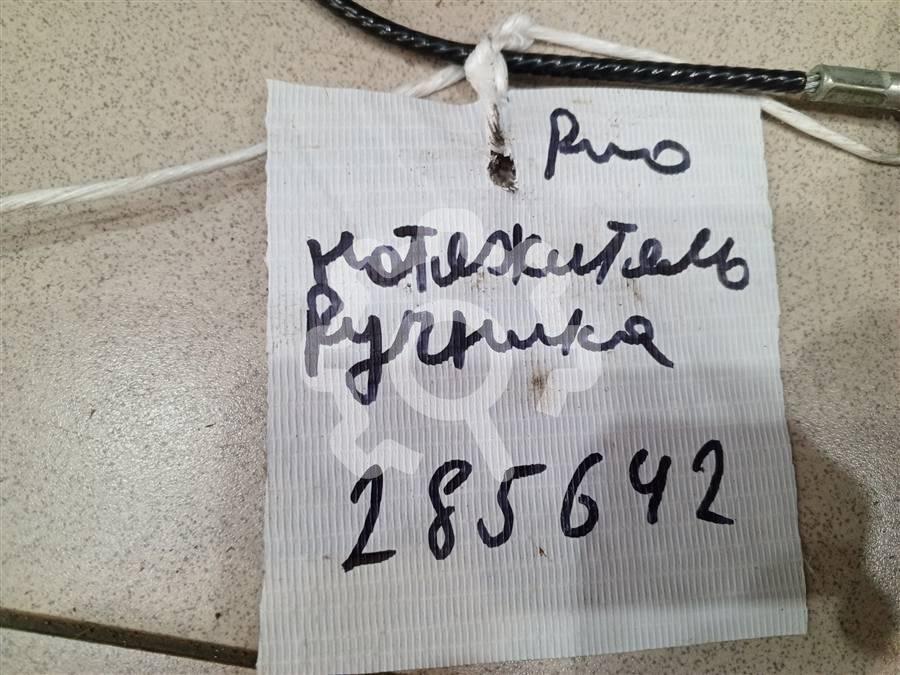 Рио
натяжитель
Ручника
285642